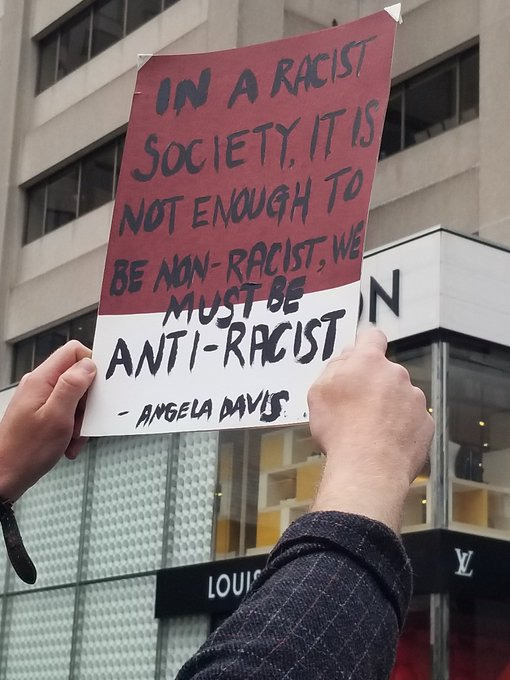 IN A RACIST
SOCIETY, IT IS
NOT ENOUGH TO
BE NON-RACIST, WE
MUST BE
ANTI-RACIST
- ANGELA DAVIS.
ON
LOUIS
LV